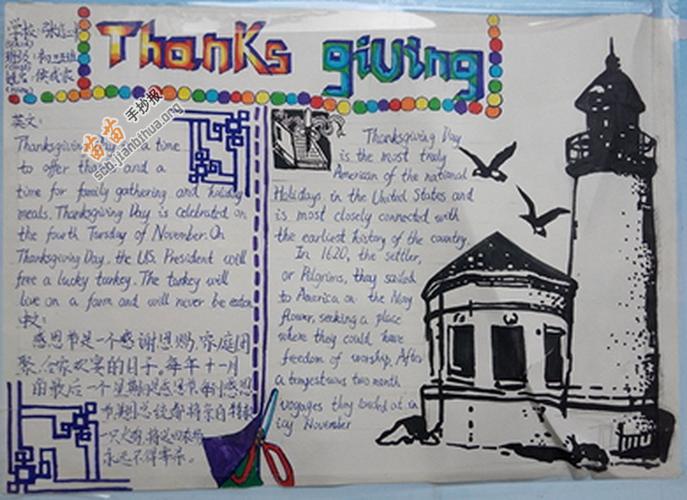 Thanksgiving
学校:张
班级:初二五班
姓名:侯
苗苗手抄报
scb.jianbihua.org
英文:
Thanksgiving Day is a time
to offer thanks and a
time for family gathering and holiday
meals. Thanksgiving Day is celebrated on
the fourth Tuesday of November. On
Thanksgiving Day, the U.S. President will
free a lucky turkey. The turkey will
live on a farm and will never be eaten
中文:
感恩节是一个感谢恩赐,家庭团
聚,合家欢宴的日子。每年十一月
最后一个星期 是感恩节。每到感恩
节,美国总统都将亲自特赦
一只火鸡,将这
永远不得宰杀。
Thanksgiving Day
is the most truly
American of the national
Holidays in the United States and
is most closely connected with
the earliest history of the country.
In 1620, the settler,
or Pilgrims, they sailed
to America on the May
flower, seeking a place
where they could have
freedom of worship. After
a tempestuous two month
voyages they landed at in
icy November